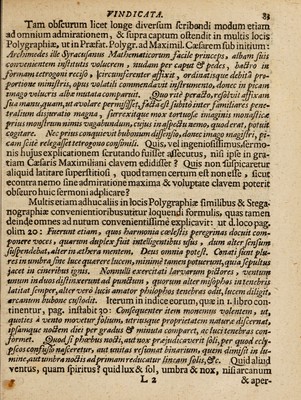 VINDICATA. 83
Tam obscurum licet longe diversum scribendi modum etiam
ad omnium admirationem, & supra captum ostendit in multis locis
Polygraphiæ, ut in Præfat. Polygr. ad Maximil. Cæsarem sub initium:
Archimedes ille Syracusanus Mathematicorum facile princeps, album sui
convenientem institutis volucrem, nudam per caput & pedes, bacto in
formam tetrogoni recijo, circunscienter affixit, ordinatinque debitâ pro-
portione ministris, opus volatili commendavit instrumento, donec in picam
imago volucris albæ mutata compareat. Quo ritè peracto, resolvit affixam
suâ manu, quam, ut avolare permisisset, facta est subitò inter familiares pene-
tralium disparatio magna, surrexitque mox mortuæ imaginis monasticæ
prius monstrum nimis vagabundum, cujus in aspectu nemo, quod erat, potuit
cogitare. Nec prius conquievit bubonum dissensio, donec imago magistri, pi-
cam scitè relegasset tetrogono consimili. Quis, vel ingeniosissimus, sermo-
nis hujus explicationem scrutando fuisset assecutus, nisi ipse in gra-
tiam Cæsaris Maximiliani clavem edidisset? Quis non suspicaretur
aliquid latitare superstitiosi, quod tamen certum est non esse, sicut
econtra nemo sine admiratione maxima & voluptate clavem poterit
obscuro huic sermoni adplicare?
Multis etiam adhuc aliis in locis Polygraphiæ similibus & Stega-
nographiæ convenientioribus utitur loquendi formulis, quas tamen
deinde omnes ad nutum convenientissimè explicavit: ut d. loco pag.
olim 20: Fuerunt etiam, quos harmonia cælestis peregrinos docuit com-
ponere voces, quarum duplex fuit intelligentibus usus, dum alter sensum
suspendebat, alter in æthera mentem. Deus omnia potest. Conati sunt plu-
res in unum sine luce quærere lucem, minimè tamen potuerunt, quia sepultus
jacet in cineribus ignis. Nonnulli exercitati larvarum pictores, ventum
unum in duos distinxerunt ad punctum, quorum alter misophos in tenebris
latitat semper, alter verò lucis amator philophos tenebras odit, lucem diligit,
arcanum bubone custodit. Iterum in indice eorum, quæ in 1. libro con-
tinentur, pag. instabit 30: Consequenter item monemus volentem, ut,
quoties à vento movetur folium, utriusque proprietatem naturæ discernat,
ipsamque noctem diei per gradus & minuta comparet, ac luci tenebras con-
formet. Quod si phœbus nocti, aut nox præjudicaverit soli, per quod ecly-
pseos confusio nasceretur, aut unitas resumat binarium, quem dimisit in lu-
mine, aut umbra noctis ad primam reducatur lineam solis, &c. Quid aliud
ventus, quam spiritus? quid lux & sol, umbra & nox, nisi arcanum
L 2 & aper-